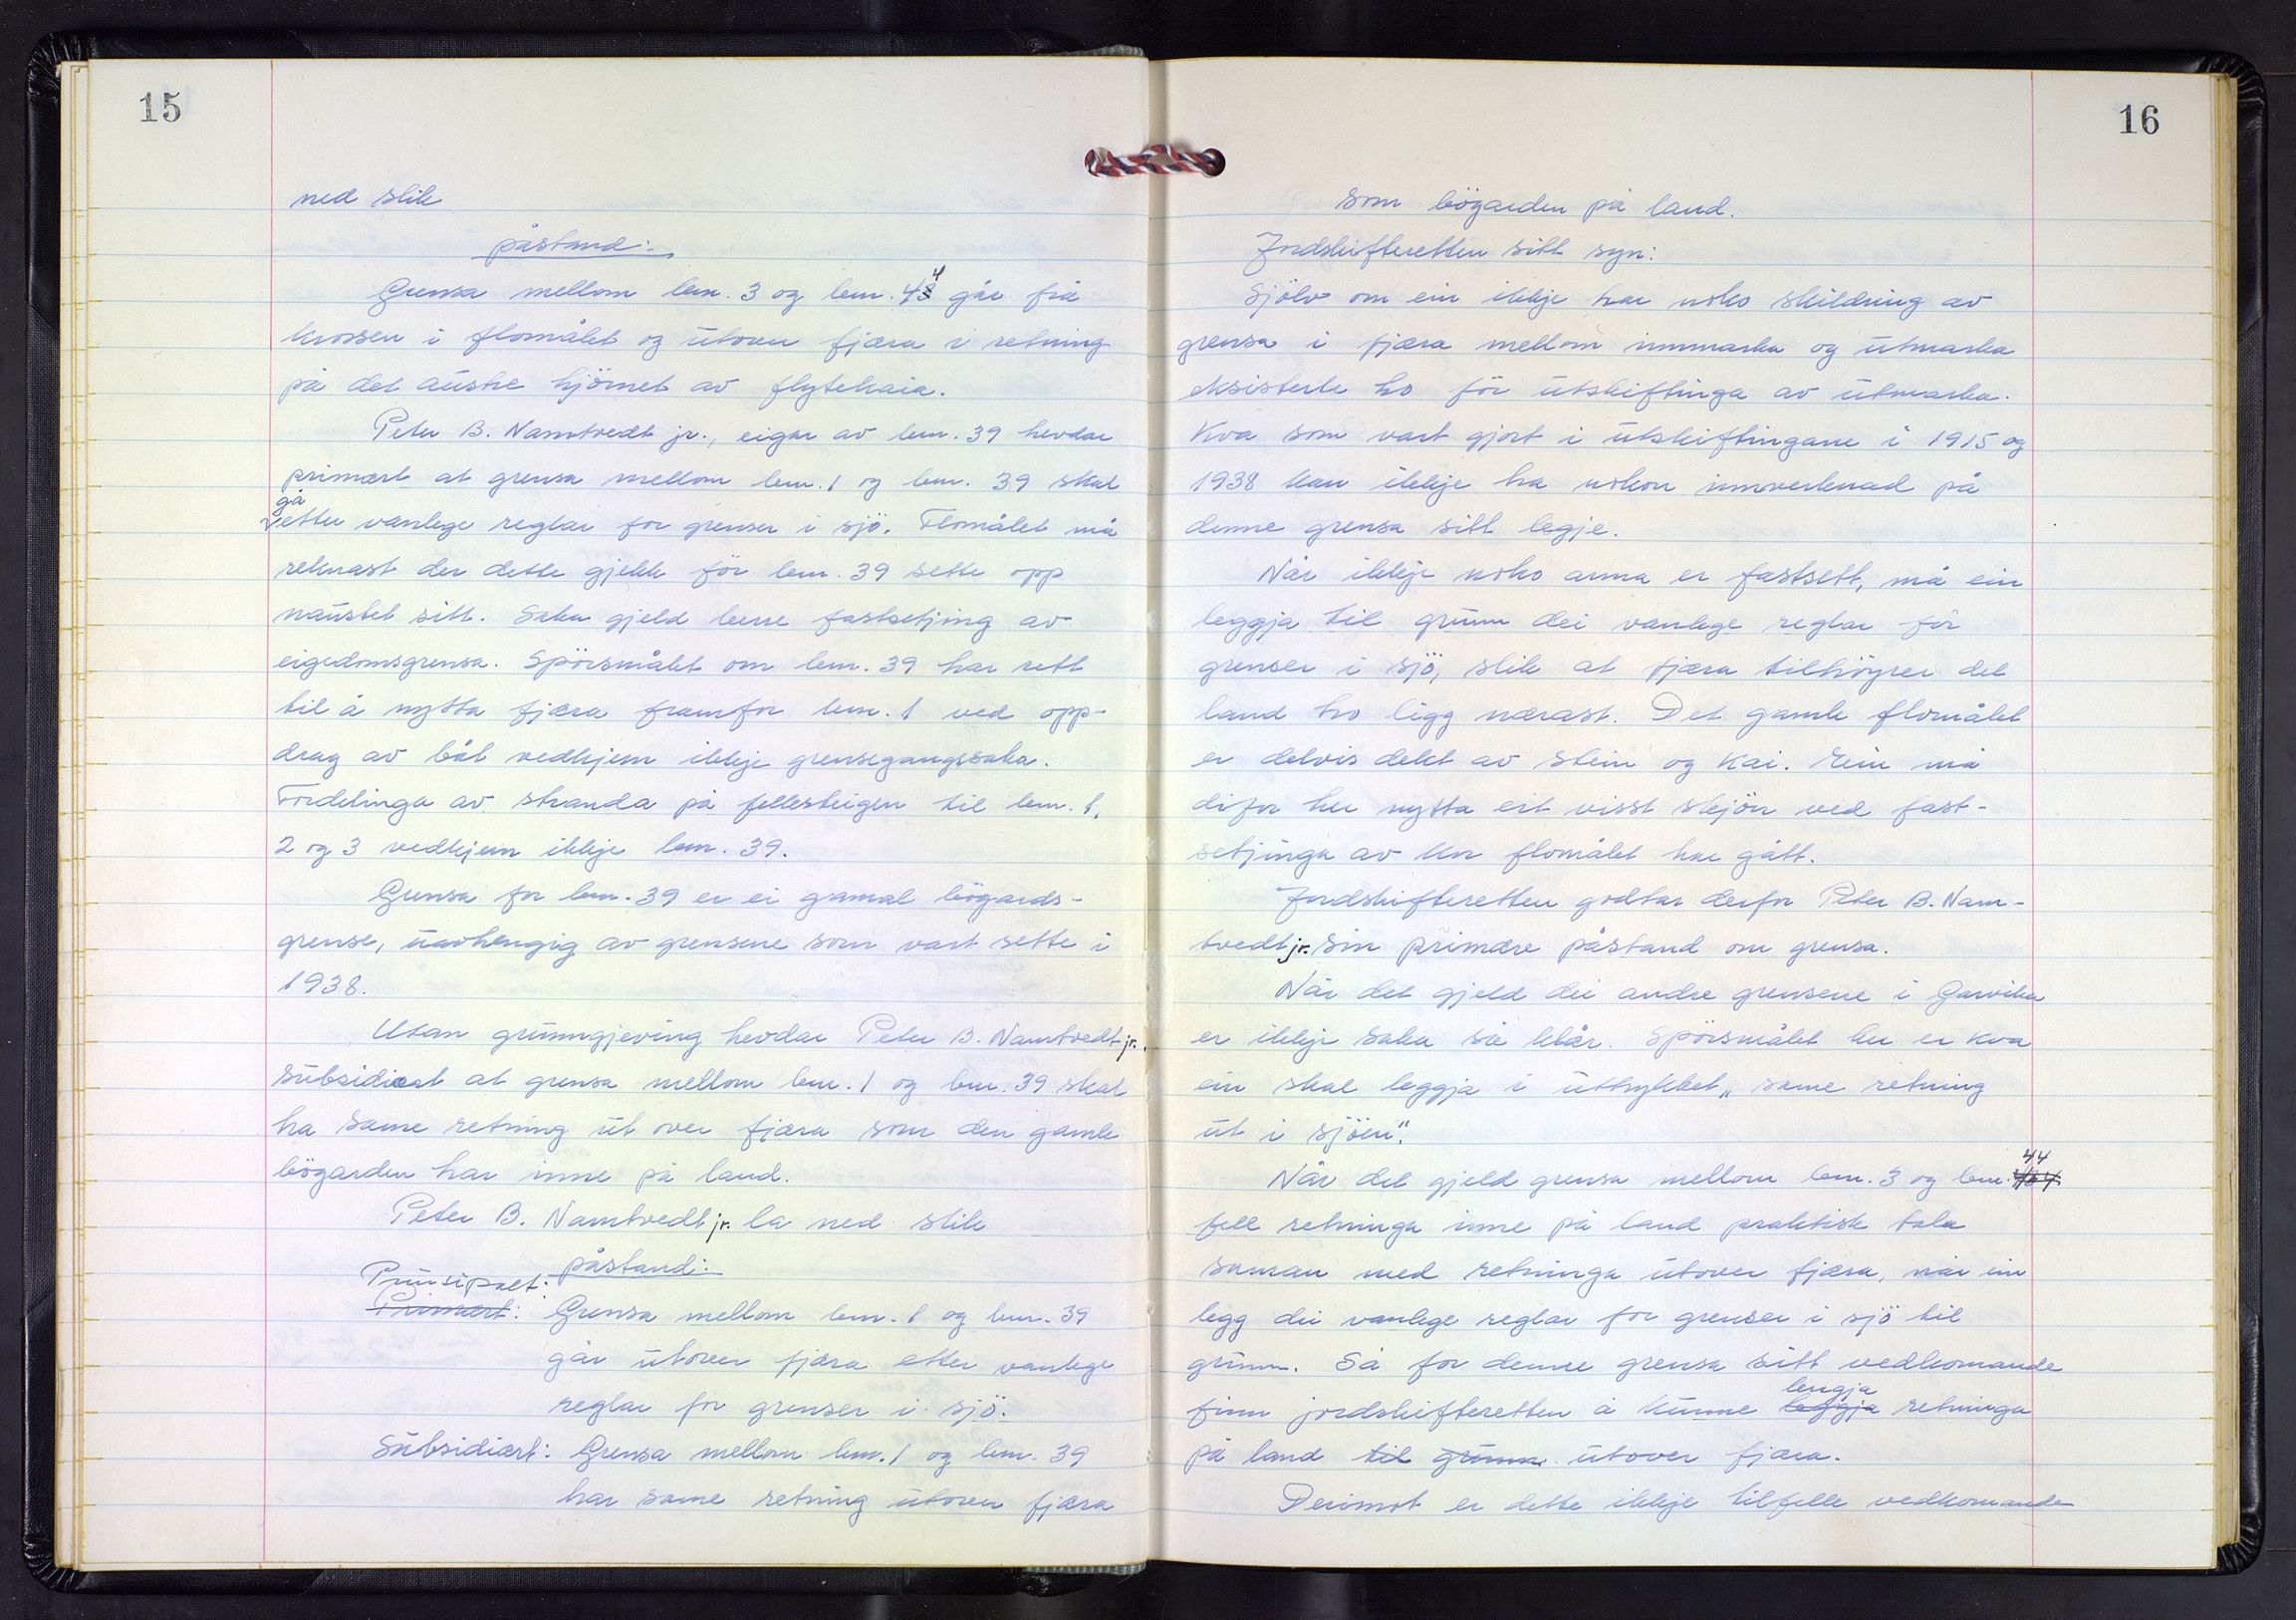 15
ned slik
påstand:
Grensa mellom bnr. 3 og bnr. 44 går frå
krossen i flomålet og utover fjæra i retning
på det austre hjörnet av flytekaia.
Peter B. Namtvedt jr., eigar av bnr. 39 hevdar
primært at grensa mellom bnr. 1 og bnr. 39 skal
gå
etter vanlege reglar for grenser i sjö. Flomålet må
reknast der dette gjekk för bnr. 39 sette opp
naustet sitt. Saka gjeld berre fastsetjing av
eigedomsgrensa. Spörsmålet om bnr. 39 har rett
til å nytta fjæra framfor bnr. 1 ved opp-
drag av båt vedkjem ikkje grensegangssaka.
Fordelinga av stranda på fellesteigen til bnr. 1,
2 og 3 vedkjem ikkje bnr. 39.
Grensa for bnr. 39 er ei gamal bögards-
grense, uavhengig av grensene som vart sette i
1938.
Utan grunngjeving hevdar Peter B. Namtvedt jr.
subsidiært at grensa mellom bnr. 1 og bnr. 39 skal
ha same retning ut over fjæra som den gamle
bögarden har inne på land.
Peter B. Namtvedt jr. la ned slik
påstand:
Prinsipalt:
Primært: Grensa mellom bnr. 1 og bnr. 39
går utover fjæra etter vanlege
reglar for grenser i sjö.
Subsidiært: Grensa mellom bnr. 1 og bnr. 39
har same retning utover fjæra
16
som bögarden på land.
Jordskifteretten sitt syn:
Sjölv om ein ikkje har noko skildring av
grensa i fjæra mellom innmarka og utmarka
eksisterte ho för utskiftinga av utmarka.
Kva som vart gjort i utskiftingane i 1915 og
1938 kan ikkje ha nokon innverknad på
denne grensa sitt legje.
Når ikkje noko anna er fastsett, må ein
leggja til grunn dei vanlege reglar for
grenser i sjö, slik at fjæra tilhöyrer det
land ho ligg nærast. Det gamle flomålet
er delvis dekt av stein og kai. Ein må
difor her nytta eit visst skjön ved fast-
setjinga av kor flomålet har gått.
Jordskifteretten godtar derfor Peter B. Nam-
tvedt jr. sin primære påstand om grensa.
Når det gjeld dei andre grensene i Garvika
er ikkje saka så klår. Spörsmålet her er kva
ein skal leggja i uttrykket „ same retning
ut i sjöen".
44
Når det gjeld grensa mellom bnr. 3 og bnr.
fell retninga inne på land praktisk tala
saman med retninga utover fjæra, når ein
legg dei vanlege reglar for grenser i sjö til
grunn. Så for denne grensa sitt vedkomande
lengja
finn jordskifteretten å kunne leggja retninga
på land til grunn utover fjæra.
Derimot er dette ikkje tilfelle vedkomande